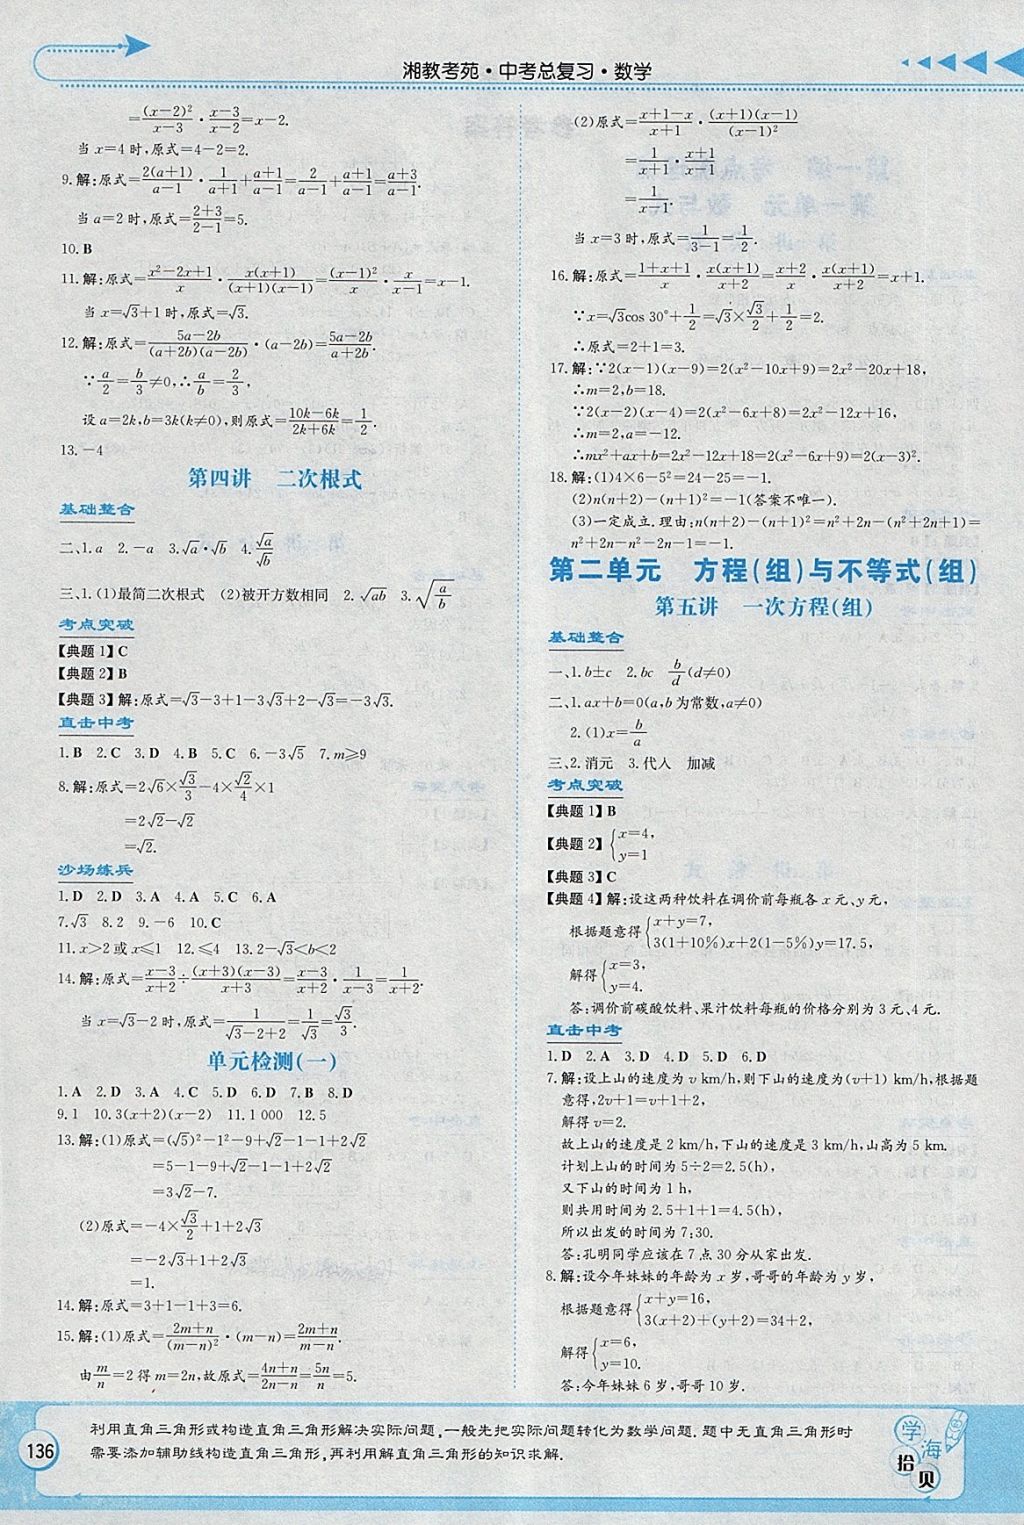 湘教考苑·中考总复习·数学
=\frac{(x-2)^2}{x-3}·\frac{x-3}{x-2}=x-2.
当x=4时,原式=4-2=2.
9.解:原式=\frac{2(a+1)}{a-1}·\frac{1}{a+1}+\frac{a+1}{a-1}=\frac{2}{a-1}+\frac{a+1}{a-1}=\frac{a+3}{a-1}.
当a=2时,原式=\frac{2+3}{2-1}=5.
10.B
11.解:原式=\frac{x^2-2x+1}{x}·\frac{x(x+1)}{(x+1)(x-1)}=\frac{(x-1)^2}{x}·\frac{x}{x-1}=x-1.
当x=√3+1时,原式=√3.
12.解:原式=\frac{5a-2b}{(a+2b)(a-2b)}·(a-2b)=\frac{5a-2b}{a+2b}.
∵\frac{a}{2}=\frac{b}{3}≠0,∴\frac{a}{b}=\frac{2}{3},
设a=2k,b=3k(k≠0),则原式=\frac{10k-6k}{2k+6k}=\frac{1}{2}.
13.-4
第四讲 二次根式
基础整合
二、1.a 2.-a 3.√a·√b 4.\frac{√a}{√b}
三、1.(1)最简二次根式 (2)被开方数相同 2.√ab 3.√\frac{a}{b}
考点突破
【典题1】C
【典题2】B
【典题3】解:原式=√3-3+1-3√3+2-√3=-3√3.
直击中考
1.B 2.C 3.D 4.B 5.C 6.-3√5 7.m≥9
8.解:原式=2√6×\frac{√3}{3}-4×\frac{√2}{4}×1
=2√2-√2
=√2.
沙场练兵
1.D 2.D 3.A 4.A 5.C 6.A
7.√3 8.2 9.-6 10.C
11.x>2或x≤1 12.≤4 13.2-√3<b<2
14.解:原式=\frac{x-3}{x+2}÷\frac{(x+3)(x-3)}{x+3}=\frac{x-3}{x+2}·\frac{1}{x-3}=\frac{1}{x+2}.
当x=√3-2时,原式=\frac{1}{√3-2+2}=\frac{1}{√3}=\frac{√3}{3}.
单元检测(一)
1.A 2.D 3.A 4.C 5.D 6.D 7.B 8.D
9.1 10.3(x+2)(x-2) 11.1 000 12.5
13.解:(1)原式=(√5)^2-1^2-9+√2-1-1+2√2
=5-1-9+√2-1-1+2√2
=3√2-7.
(2)原式=-4×\frac{√3}{2}+1+2√3
=-2√3+1+2√3
=1.
14.解:原式=3+1-1+3=6.
15.解:(1)原式=\frac{2m+n}{(m-n)^2}·(m-n)=\frac{2m+n}{m-n}.
由\frac{m}{n}=2得m=2n,故原式=\frac{4n+n}{2n-n}=\frac{5n}{n}=5.
(2)原式=\frac{x+1-x}{x+1}·\frac{(x+1)(x-1)}{(x-1)^2}
=\frac{1}{x+1}·\frac{x+1}{x-1}
=\frac{1}{x-1}.
当x=3时,原式=\frac{1}{3-1}=\frac{1}{2}.
16.解:原式=\frac{1+x+1}{x}·\frac{x(x+1)}{x+2}=\frac{x+2}{x}·\frac{x(x+1)}{x+2}=x+1.
∵x=√3cos 30°+\frac{1}{2}=√3×\frac{√3}{2}+\frac{1}{2}=2.
∴原式=2+1=3.
17.解:∵2(x-1)(x-9)=2(x^2-10x+9)=2x^2-20x+18,
∴m=2,b=18.
∵2(x-2)(x-4)=2(x^2-6x+8)=2x^2-12x+16,
∴m=2,a=-12.
∴mx^2+ax+b=2x^2-12x+18=2(x^2-6x+9)=2(x-3)^2.
18.解:(1)4×6-5^2=24-25=-1.
(2)n(n+2)-(n+1)^2=-1(答案不唯一).
(3)一定成立.理由:n(n+2)-(n+1)^2=n^2+2n-(n^2+2n+1)=
n^2+2n-n^2-2n-1=-1.
第二单元 方程(组)与不等式(组)
第五讲 一次方程(组)
基础整合
一、1.b±c 2.bc \frac{b}{d}(d≠0)
二、1.ax+b=0(a,b为常数,a≠0)
2.(1)x=\frac{b}{a}
三、2.消元 3.代人 加减
考点突破
【典题1】B
【典题2】{x=4,
y=1
【典题3】C
【典题4】解:设这两种饮料在调价前每瓶各x元、y元,
根据题意得{x+y=7,
3(1+10%)x+2(1-5%)y=17.5,
解得{x=3,
y=4.
答:调价前碳酸饮料、果汁饮料每瓶的价格分别为3元、4元.
直击中考
1.D 2.A 3.D 4.D 5.D 6.D
7.解:设上山的速度为v km/h,则下山的速度为(v+1) km/h,根据题
意得,2v+1=v+1+2,
解得v=2.
故上山的速度是2 km/h,下山的速度是3 km/h,山高为5 km.
计划上山的时间为5÷2=2.5(h),
又下山的时间为1 h,
则共用时间为2.5+1+1=4.5(h),
所以出发的时间为7:30.
答:孔明同学应该在7点30分从家出发.
8.解:设今年妹妹的年龄为x岁,哥哥的年龄为y岁,
根据题意得{x+y=16,
3(x+2)+(y+2)=34+2,
解得{x=6,
y=10.
答:今年妹妹6岁,哥哥10岁.
136
利用直角三角形或构造直角三角形解决实际问题,一般先把实际问题转化为数学问题.题中无直角三角形时
需要添加辅助线构造直角三角形,再利用解直角三角形的知识求解.
学海拾贝